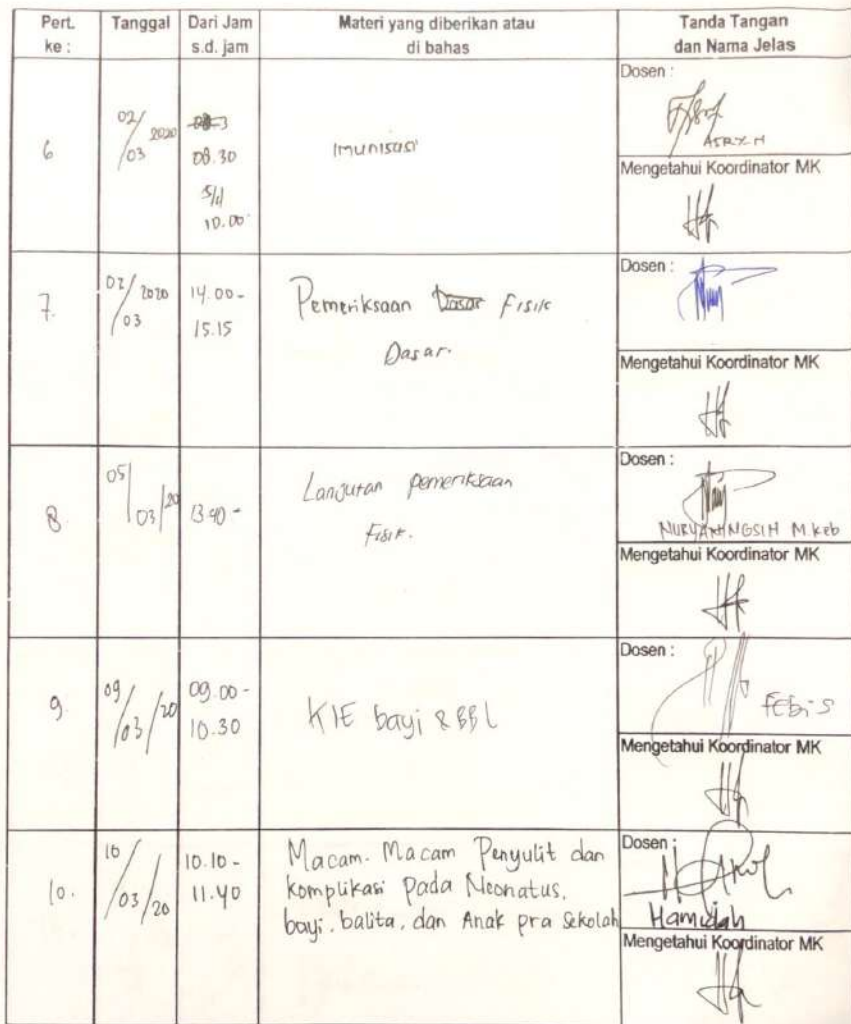 Pert. ke :
Tanggal
Dari Jam s.d. jam
Materi yang diberikan atau di bahas
Tanda Tangan dan Nama Jelas
6
02/03 2020
08.30
s/d
10.00
Imunisasi
Dosen :
Mengetahui Koordinator MK
7.
02/03 2020
14.00 -
15.15
Pemeriksaan Dasar Fisik
Dasar.
Dosen :
Mengetahui Koordinator MK
8.
05/03/20
13.40 -
Lanjutan pemeriksaan
Fisik.
Dosen :
NURYANINGSIH M.Keb
Mengetahui Koordinator MK
9.
09/03/20
09.00 -
10.30
KIE bayi & BBL
Dosen :
FEBi S
Mengetahui Koordinator MK
10.
10/03/20
10.10 -
11.40
Macam-Macam Penyulit dan
komplikasi pada Neonatus,
bayi, balita, dan Anak pra Sekolah
Dosen :
Hamidah
Mengetahui Koordinator MK